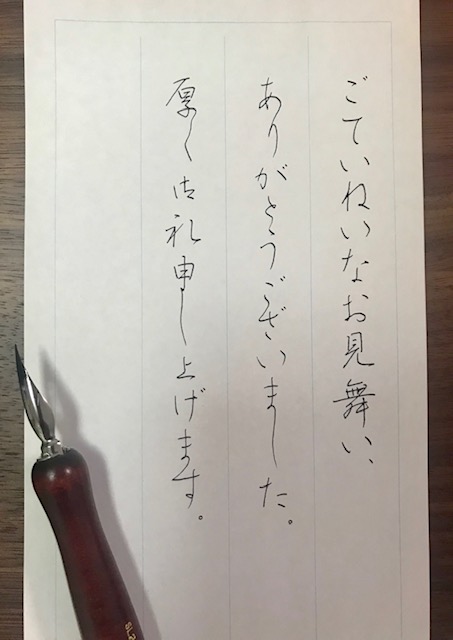 ごていねいなお見舞い、
ありがとうございました。
厚く御礼申し上げます。